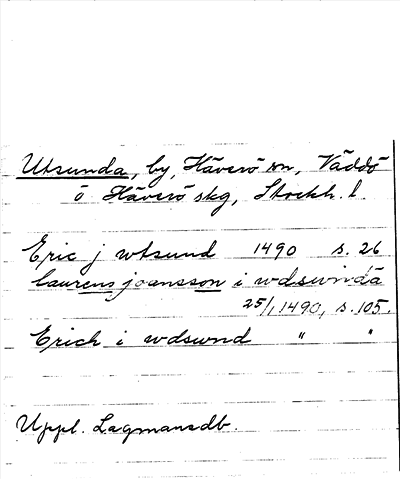 Utsunda, by, Häverö sn, Väddö
o Häverö skg, Stockh. l.
Eric j wtsund 1490 s. 26
laurens joansson i wdswnda
25/1 1490, s. 105.
Erich i wdswnd " "
Uppl. Lagmansdb.